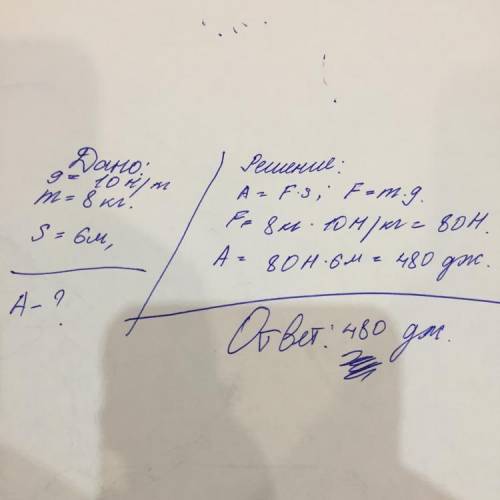 Дано:
g = 10 Н/м
m = 8 кг.
S = 6м,
A - ?
Решение:
A = F·s; F = m·g.
F = 8кг · 10Н/кг = 80Н.
A = 80Н·6м = 480 дж.
Ответ: 480 дж.